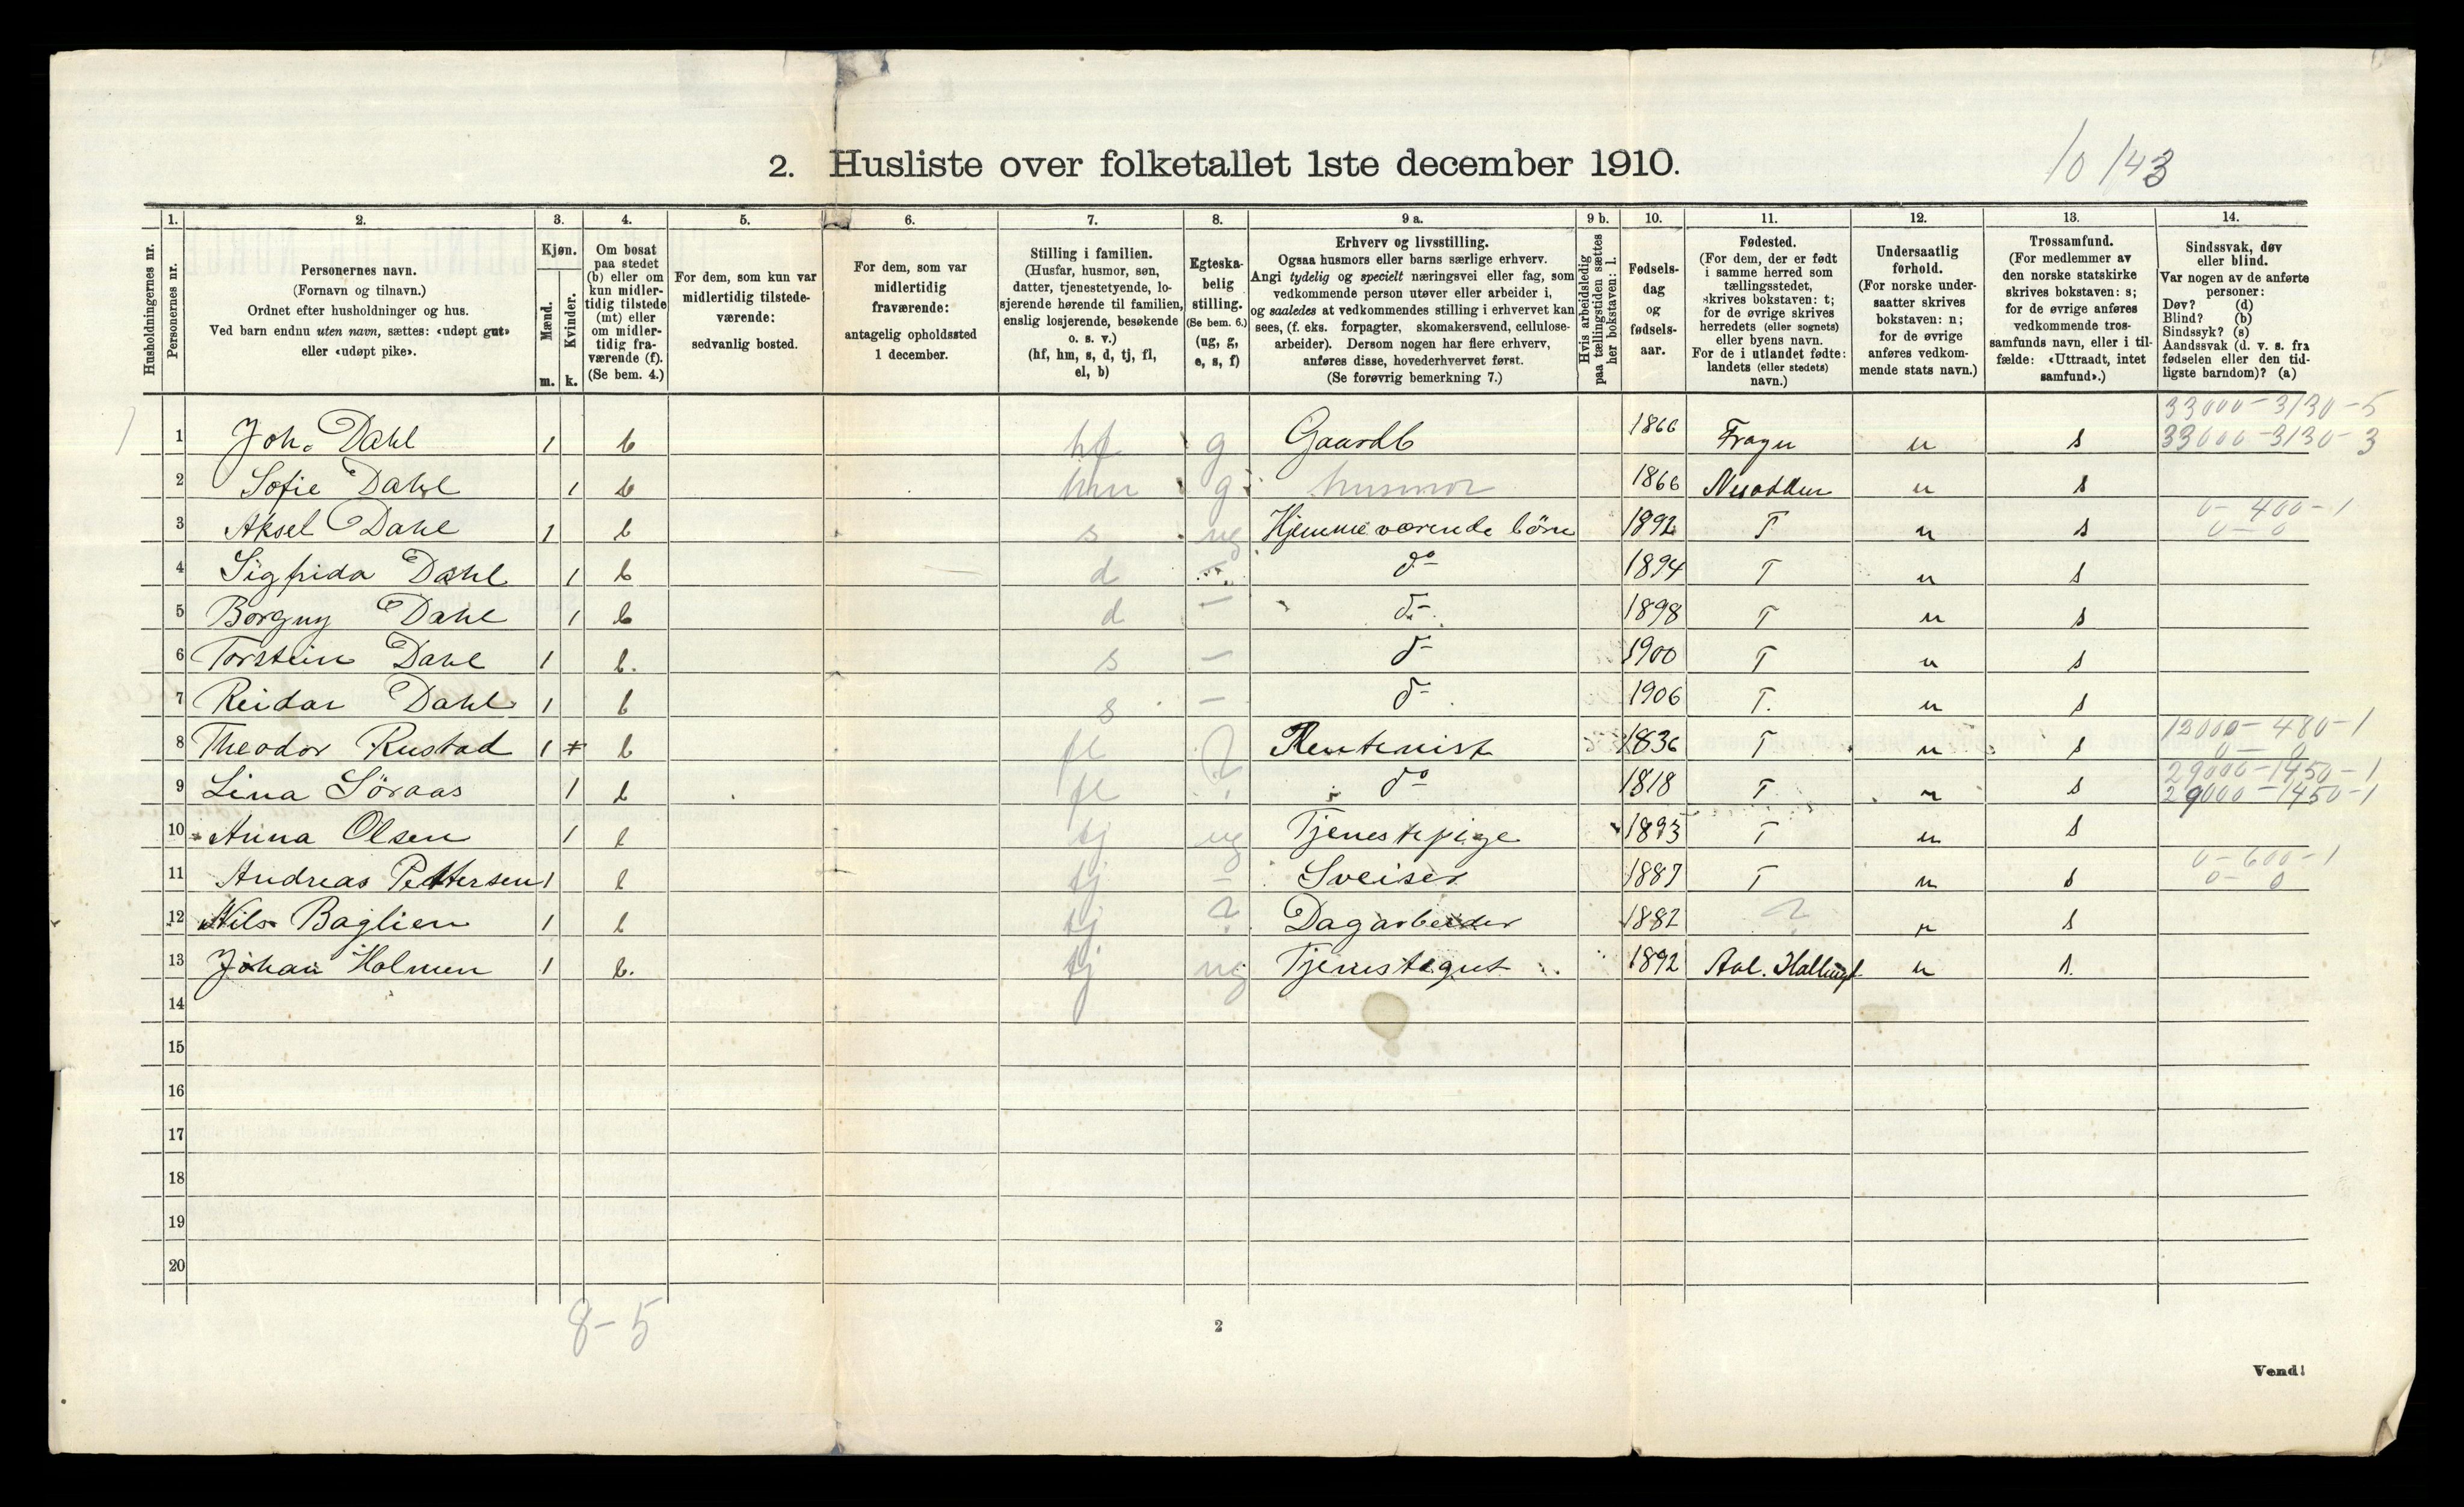 2. Husliste over folketallet 1ste december 1910.
10/143
1. 2. 3. 4. 5. 6. 7. 8. 9 a. 9 b. 10. 11. 12. 13. 14.
Husholdningernes nr.
Personernes nr.
Personernes navn.
(Fornavn og tilnavn.)
Ordnet efter husholdninger og hus.
Ved barn endnu uten navn, sættes: «udøpt gut»
eller «udøpt pike».
Kjøn.
Mænd.
m.
Kvinder.
k.
Om bosat
paa stedet
(b) eller om
kun midler-
tidig tilstede
(mt) eller
om midler-
tidig fra-
værende (f).
(Se bem. 4.)
For dem, som kun var
midlertidig tilstede-
værende:
sedvanlig bosted.
For dem, som var
midlertidig
fraværende:
antagelig opholdssted
1 december.
Stilling i familien.
(Husfar, husmor, søn,
datter, tjenestetyende, lo-
sjerende hørende til familien,
enslig losjerende, besøkende
o. s. v.)
(hf, hm, s, d, tj, fl,
el, b)
Egteska-
belig
stilling.
(Se bem. 6.)
(ug, g,
e, s, f)
Erhverv og livsstilling.
Ogsaa husmors eller barns særlige erhverv.
Angi tydelig og specielt næringsvei eller fag, som
vedkommende person utøver eller arbeider i,
og saaledes at vedkommendes stilling i erhvervet kan
sees, (f. eks. forpagter, skomakersvend, cellulose-
arbeider). Dersom nogen har flere erhverv,
anføres disse, hovederhvervet først.
(Se forøvrig bemerkning 7.)
Hvis arbeidsledig
paa tællingstiden sættes
her bokstaven: l.
Fødsels-
dag
og
fødsels-
aar.
Fødested.
(For dem, der er født
i samme herred som
tællingsstedet,
skrives bokstaven: t;
for de øvrige skrives
herredets (eller sognets)
eller byens navn.
For de i utlandet fødte:
landets (eller stedets)
navn.)
Undersaatlig
forhold.
(For norske under-
saatter skrives
bokstaven: n;
for de øvrige
anføres vedkom-
mende stats navn.)
Trossamfund.
(For medlemmer av
den norske statskirke
skrives bokstaven: s;
for de øvrige anføres
vedkommende tros-
samfunds navn, eller i til-
fælde: «Uttraadt, intet
samfund».)
Sindssvak, døv
eller blind.
Var nogen av de anførte
personer:
Døv? (d)
Blind? (b)
Sindssyk? (s)
Aandssvak (d. v. s. fra
fødselen eller den tid-
ligste barndom)? (a)
33000-3130-5
1 1 Joh. Dahl 1 b hf g Gaardb 1866 Frogn n s 33000-3130-3
2 Sofie Dahl 1 b hm g husmor 1866 Nesodden n s
0-400-1
3 Aksel Dahl 1 b s ug Hjemmeværende börn 1892 T n s 0-0
4 Sigfrida Dahl 1 b d - do 1894 T n s
5 Borgny Dahl 1 b d - do 1898 T n s
6 Torstein Dahl 1 b. s - do 1900 T n s
7 Reidar Dahl 1 b s - do 1906 T. n s
12000-480-1
8 Theodor Rustad 1 b fl ? Rentenist 1836 T n s 0-0
29000-1450-1
9 Lina Söraas 1 b fl ? do 1818 T n s 29000-1450-1
10 Anna Olsen 1 b tj ug Tjenestepige 1893 T n s
0-600-1
11 Andreas Pettersen 1 b tj - Sveiser 1887 T n s 0-0
12 Nils Baglien 1 b tj ? Dagarbeider 1882 ? n s
13 Johan Holmen 1 b. tj ug Tjenestegut 1892 Aal. Hallingd n s.
14
15
16
17
18
19
20
8-5
2
Vend!